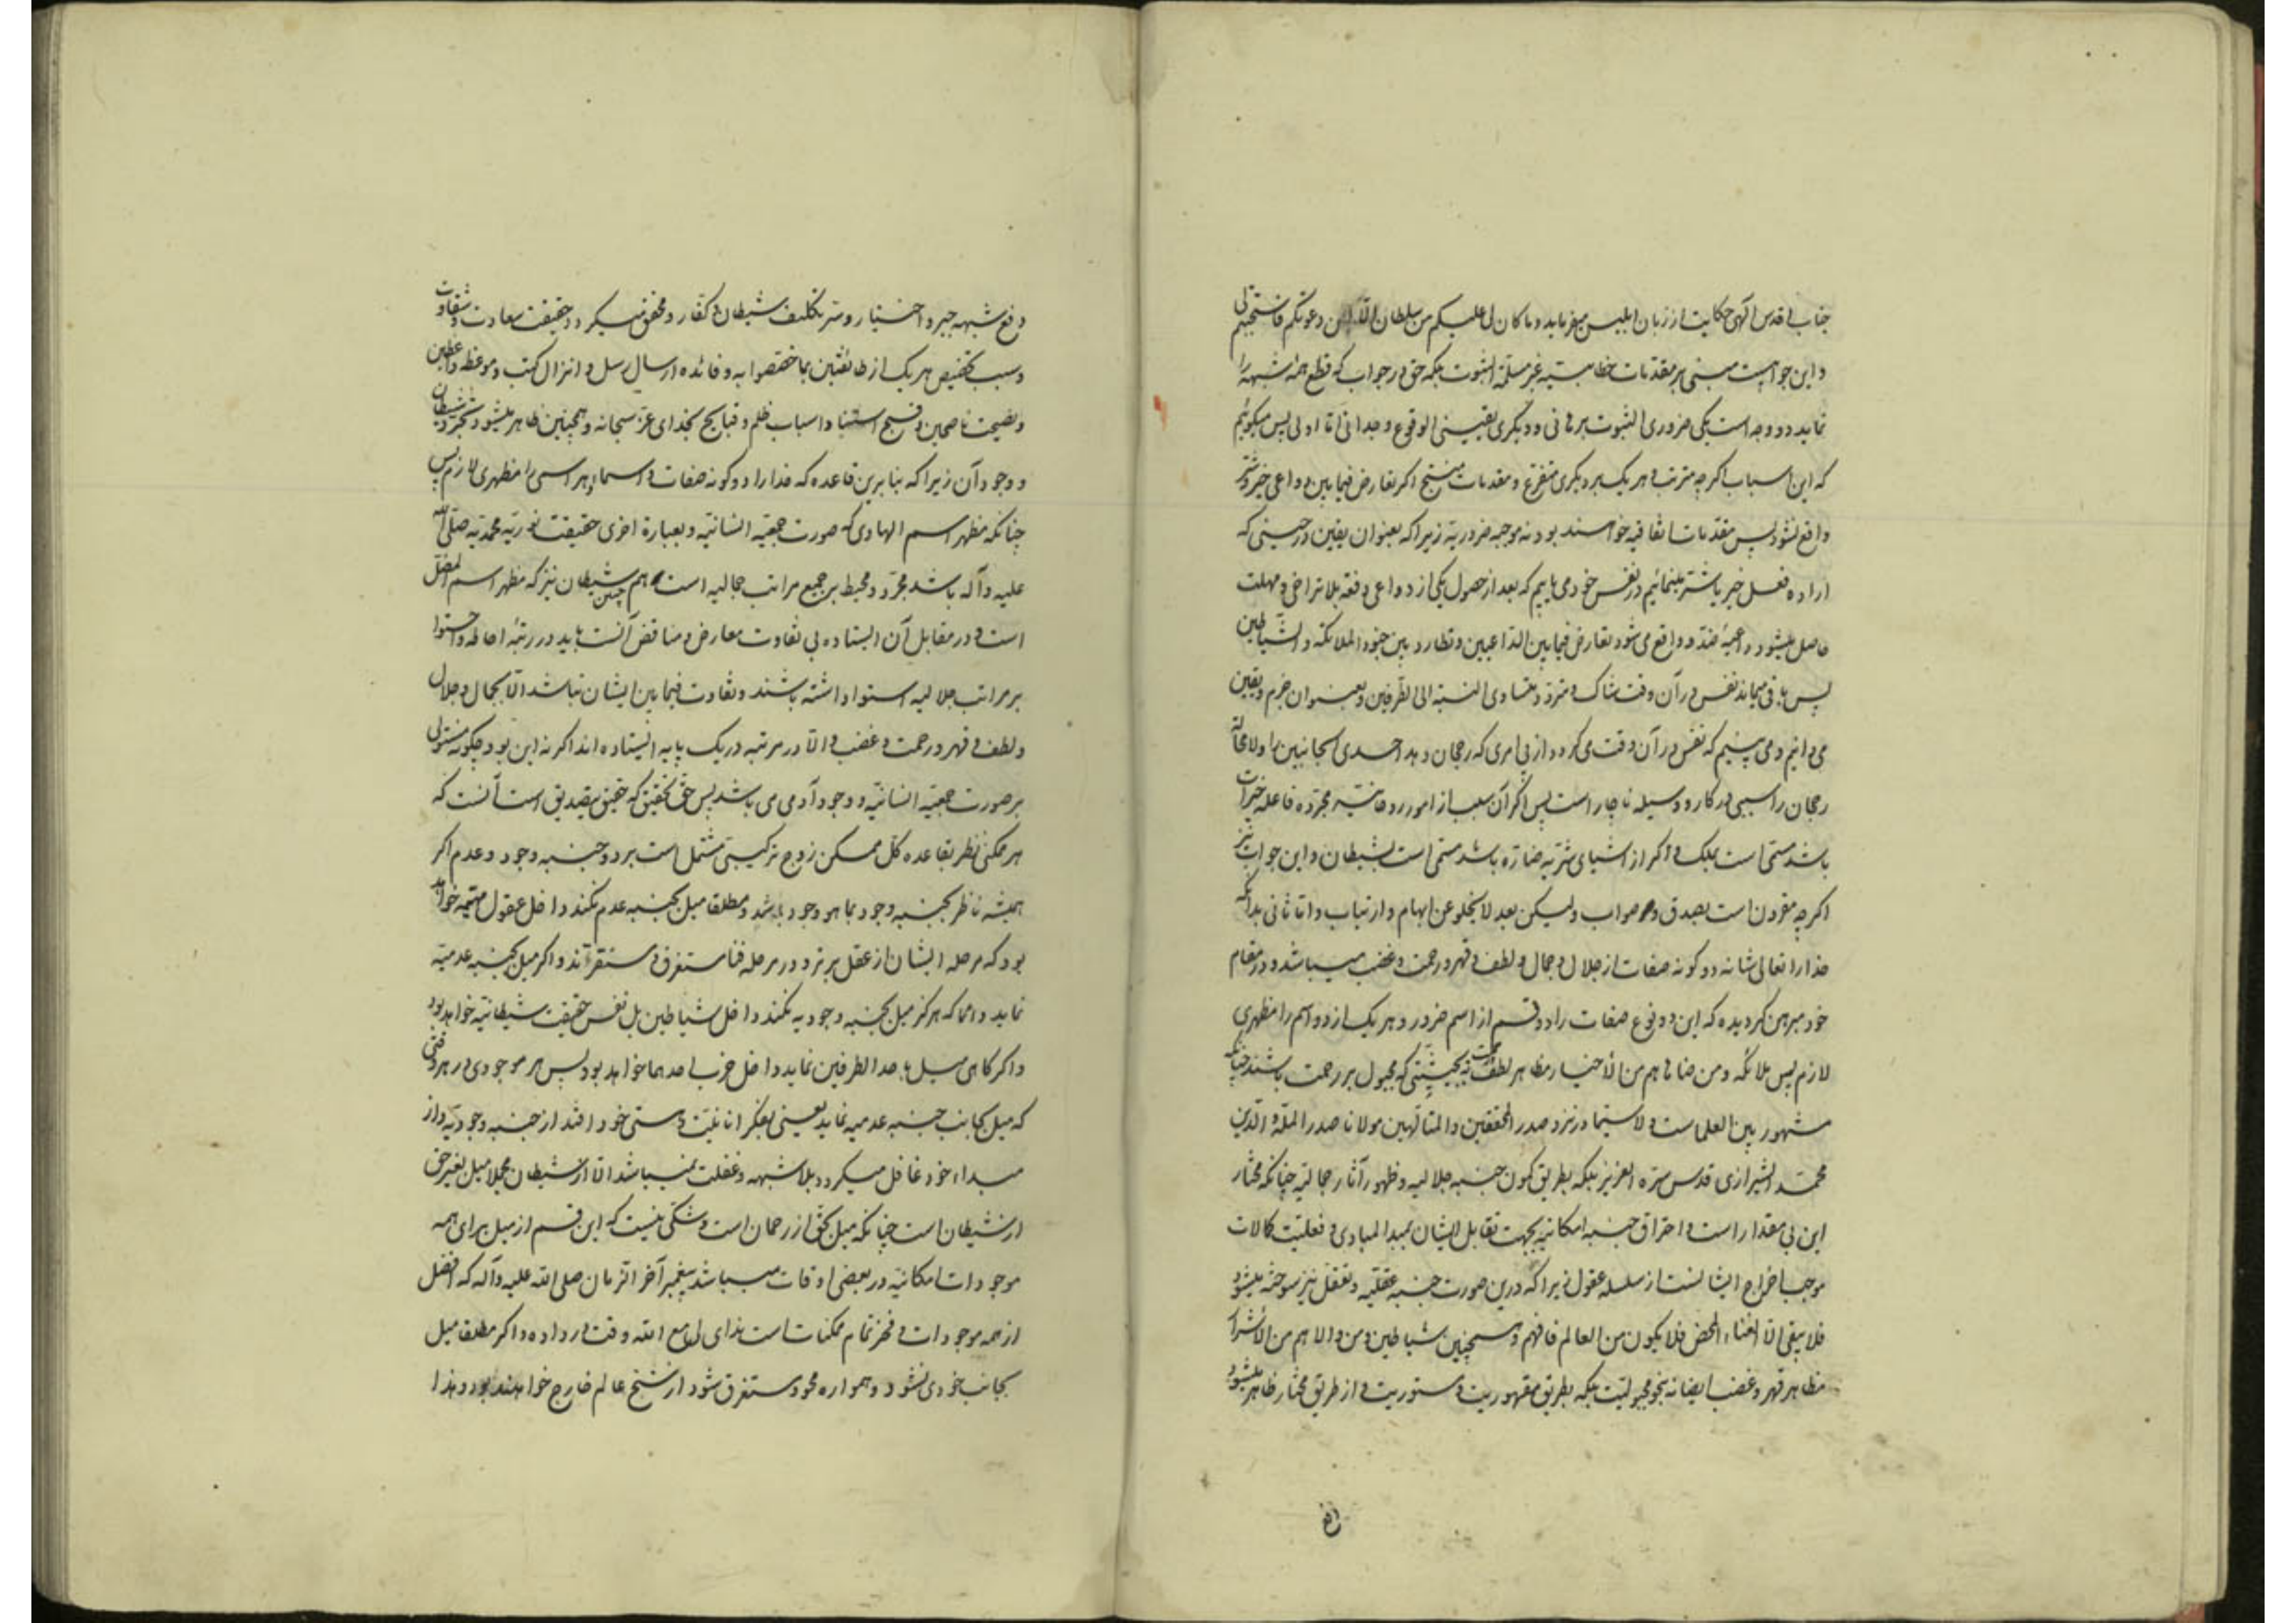 جناب اقدس الهی حکایت از زبان ابلیس میفرماید و ما کان لی علیکم من سلطان الا ان دعوتکم فاستجبتم لی
و این جوابیست مبنی بر مقدمات خطابیه غیر مسلمة الثبوت بلکه حق در جواب که قطع همه شبهه را
نماید دو وجه است یکی ضروری الثبوت برهانی و دیگری یقینی الوقوع وجدانی اما اولی پس میگوئیم
که این اسباب اگرچه مترتب و هر یک بر دیگری متفرع و مقدمات منتج اگر تعارض فیمابین دواعی خیر و شر
واقع نشود پس مقدمات اتفاقیه خواهند بود نه موجبه ضروریه زیرا که بعنوان یقین در حینی که
اراده فعل خیر یا شر مینمائیم در نفس خود می یابیم که بعد از حصول یکی از دواعی دفعة بلا تراخی و مهلت
حاصل میشود داعیهٔ ضد و واقع می شود تعارض فیمابین الداعیین و تطارد بین جنود الملائکه و الشیاطین
پس باقی میماند نفس در آن وقت شاک و متردد متساوی النسبة الی الطرفین و بعنوان جزم و یقین
می دانیم و می بینیم که نفس در آن وقت می گردد از پی امری که رجحان دهد احدی الجانبین را و لا محالة
رجحان را سببی در کار و وسیله ناچار است پس اگر آن سبب از امور روحانیه مجرده فاعله خیرات
باشد مسمی است بملک و اگر از اشیای شریه ضاره باشد مسمی است بشیطان و این جواب نیز
اگرچه مقرون است بصدق و صواب ولیکن بعد لا یخلو عن ابهام و ارتیاب و اما ثانی بدانکه
خدا را تعالی شانه دو گونه صفات از جلال و جمال و لطف و قهر و رحمت و غضب میباشد و در مقام
خود مبرهن گردیده که این دو نوع صفات را دو قسم از اسم ضرور و هر یک از دو اسم را مظهری
لازم پس ملائکه و من ضاهاهم من الأخیار مظاهر لطف نه بحیثیتی که مجبول بر رحمت باشند چنانکه
مشهور بین العلماست و لا سیما در نزد صدر المحققین و المتألهین مولانا صدر الملة و الدین
محمد الشیرازی قدس سره العزیز بلکه بطریق کمون جنبه جلالیه و ظهور آثار جمالیه چنانکه مختار
این بی مقدار است و احتراق جنبه امکانیه بجهت تقابل ایشان بمبدا المبادی و فعلیت کمالات
موجب اخراج ایشانست از سلسله عقول زیرا که درین صورت جنبه عقلیه و تعقل نیز سوخته میشود
فلا یبقی الا الفناء المحض فلا یکون من العالم فافهم و همچنین شیاطین و من والاهم من الأشرار
مظاهر قهر و غضب ایضا نه بنحو مجبولیت بلکه بطریق مقهوریت و مستوریت و از طریق مختار ظاهر میشود
دفع
دفع شبهه جبر و اختیار و سر تکلیف شیطان و کفار و محقق میگردد حقیقت سعادت و شقاوت
و سبب تخصیص هر یک از طائفتین بما خصصوا به و فائده ارسال رسل و انزال کتب و موعظه واعظین
و نصیحت ناصحین و قبح استناد اسباب ظلم و قبایح بخدای عز سبحانه و همچنین ظاهر میشود تجرد شیطان
و وجود آن زیرا که بنا برین قاعده که خدا را دو گونه صفات و اسماء و هر اسمی را مظهری لازم پس
چنانکه مظهر اسم الهادی که صورت جمعیه انسانیه و بعبارة اخری حقیقت نوریه محمدیه صلی الله
علیه و آله باشد مجرد و محیط بر جمیع مراتب جمالیه است هم چنین شیطان نیز که مظهر اسم المضل
است و در مقابل آن ایستاده بی تفاوت معارض و مناقض آنست باید در رتبه احاطه و احتوا
بر مراتب جلالیه استوا داشته باشند و تفاوت فیمابین ایشان نباشد الا بجمال و جلال
و لطف و قهر و رحمت و غضب و الا در مرتبه در یک پایه ایستاده اند اگر نه این بود چگونه مستولی
بر صورت جمعیه انسانیه و وجود آدمی می باشد پس حق تحقیق که حقیق بتصدیق است آنست که
هر ممکنی نظر بقاعده کل ممکن زوج ترکیبی مشتمل است بر دو جنبه وجود و عدم اگر
همیشه ناظر بجنبه وجود بما هو وجود باشد و مطلقا میل بجنبه عدم نکند داخل عقول مهیمه خواهد
بود که مرحله ایشان از عقل برتر و در مرحله فنا مستغرق و مستقر اند و اگر میل بجنبه عدمیه
نماید دائما که هرگز میل بجنبه وجودیه نکند داخل شیاطین بل نفس حقیقت شیطانیه خواهد بود
و اگر گاهی میل باحد الطرفین نماید داخل حزب احدهما خواهد بود پس هر موجودی در هر وقتی
که میل بجانب جنبه عدمیه نماید یعنی بفکر انانیت و هستی خود افتد از جنبه وجودیه و از
مبداء خود غافل میگردد بلا شبهه و غفلت نمیباشد الا از شیطان مجملا میل بغیر حق
از شیطان است چنانکه میل بحق از رحمان است و شکی نیست که این قسم از میل برای همه
موجودات امکانیه در بعضی اوقات میباشد پیغمبر آخر الزمان صلی الله علیه و آله که افضل
از همه موجودات و فخر تمام ممکنات است ندای لی مع الله وقت در داده و اگر مطلقا میل
بجانب خودی نشود و همواره محو و مستغرق شود از سنخ عالم خارج خواهند بود و هذا